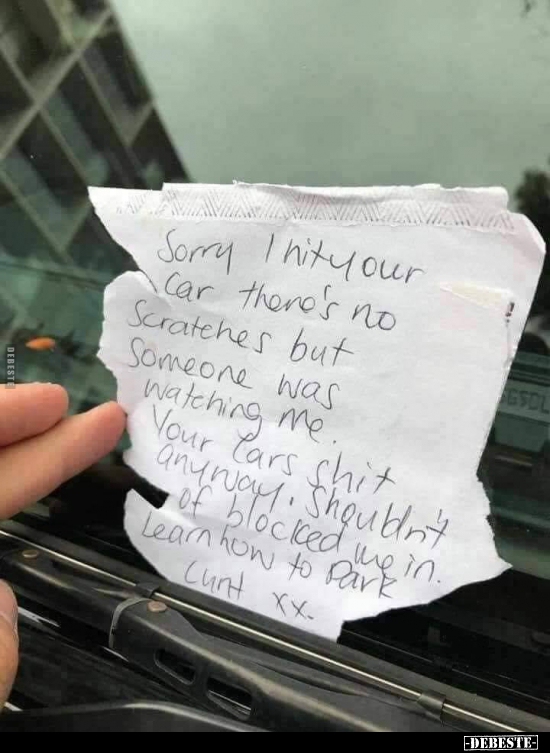 Sorry I hit your
car there's no
Scratches but
Someone was
watching me.
Your Cars shit
anyway. Shouldn't
of blocked me in.
Learn how to Park
Cunt xx.
DEBESTE
-DEBESTE-